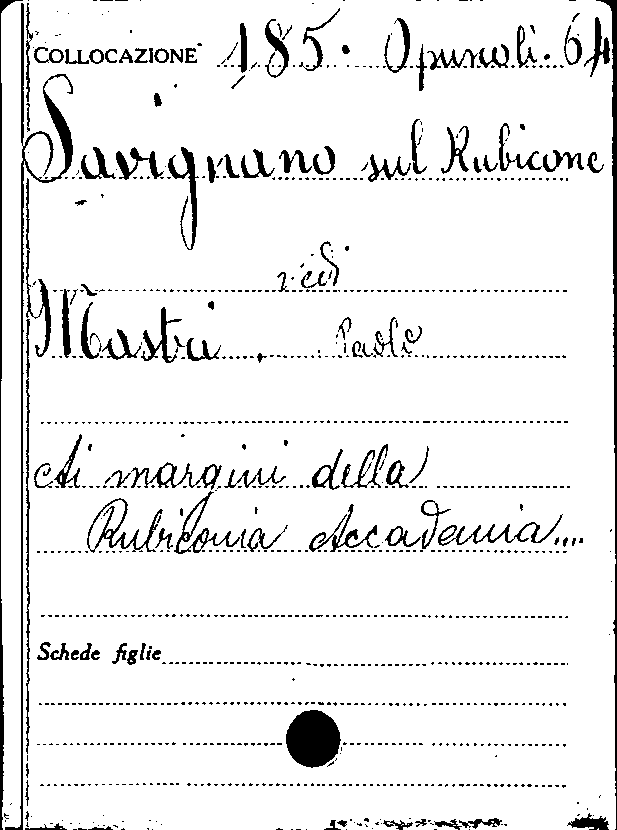 COLLOCAZIONE 185. Opuscoli. 64
Savignano sul Rubicone
vedi
Mastri . Paolo
Ai margini della
Rubiconia Accademia....
Schede figlie